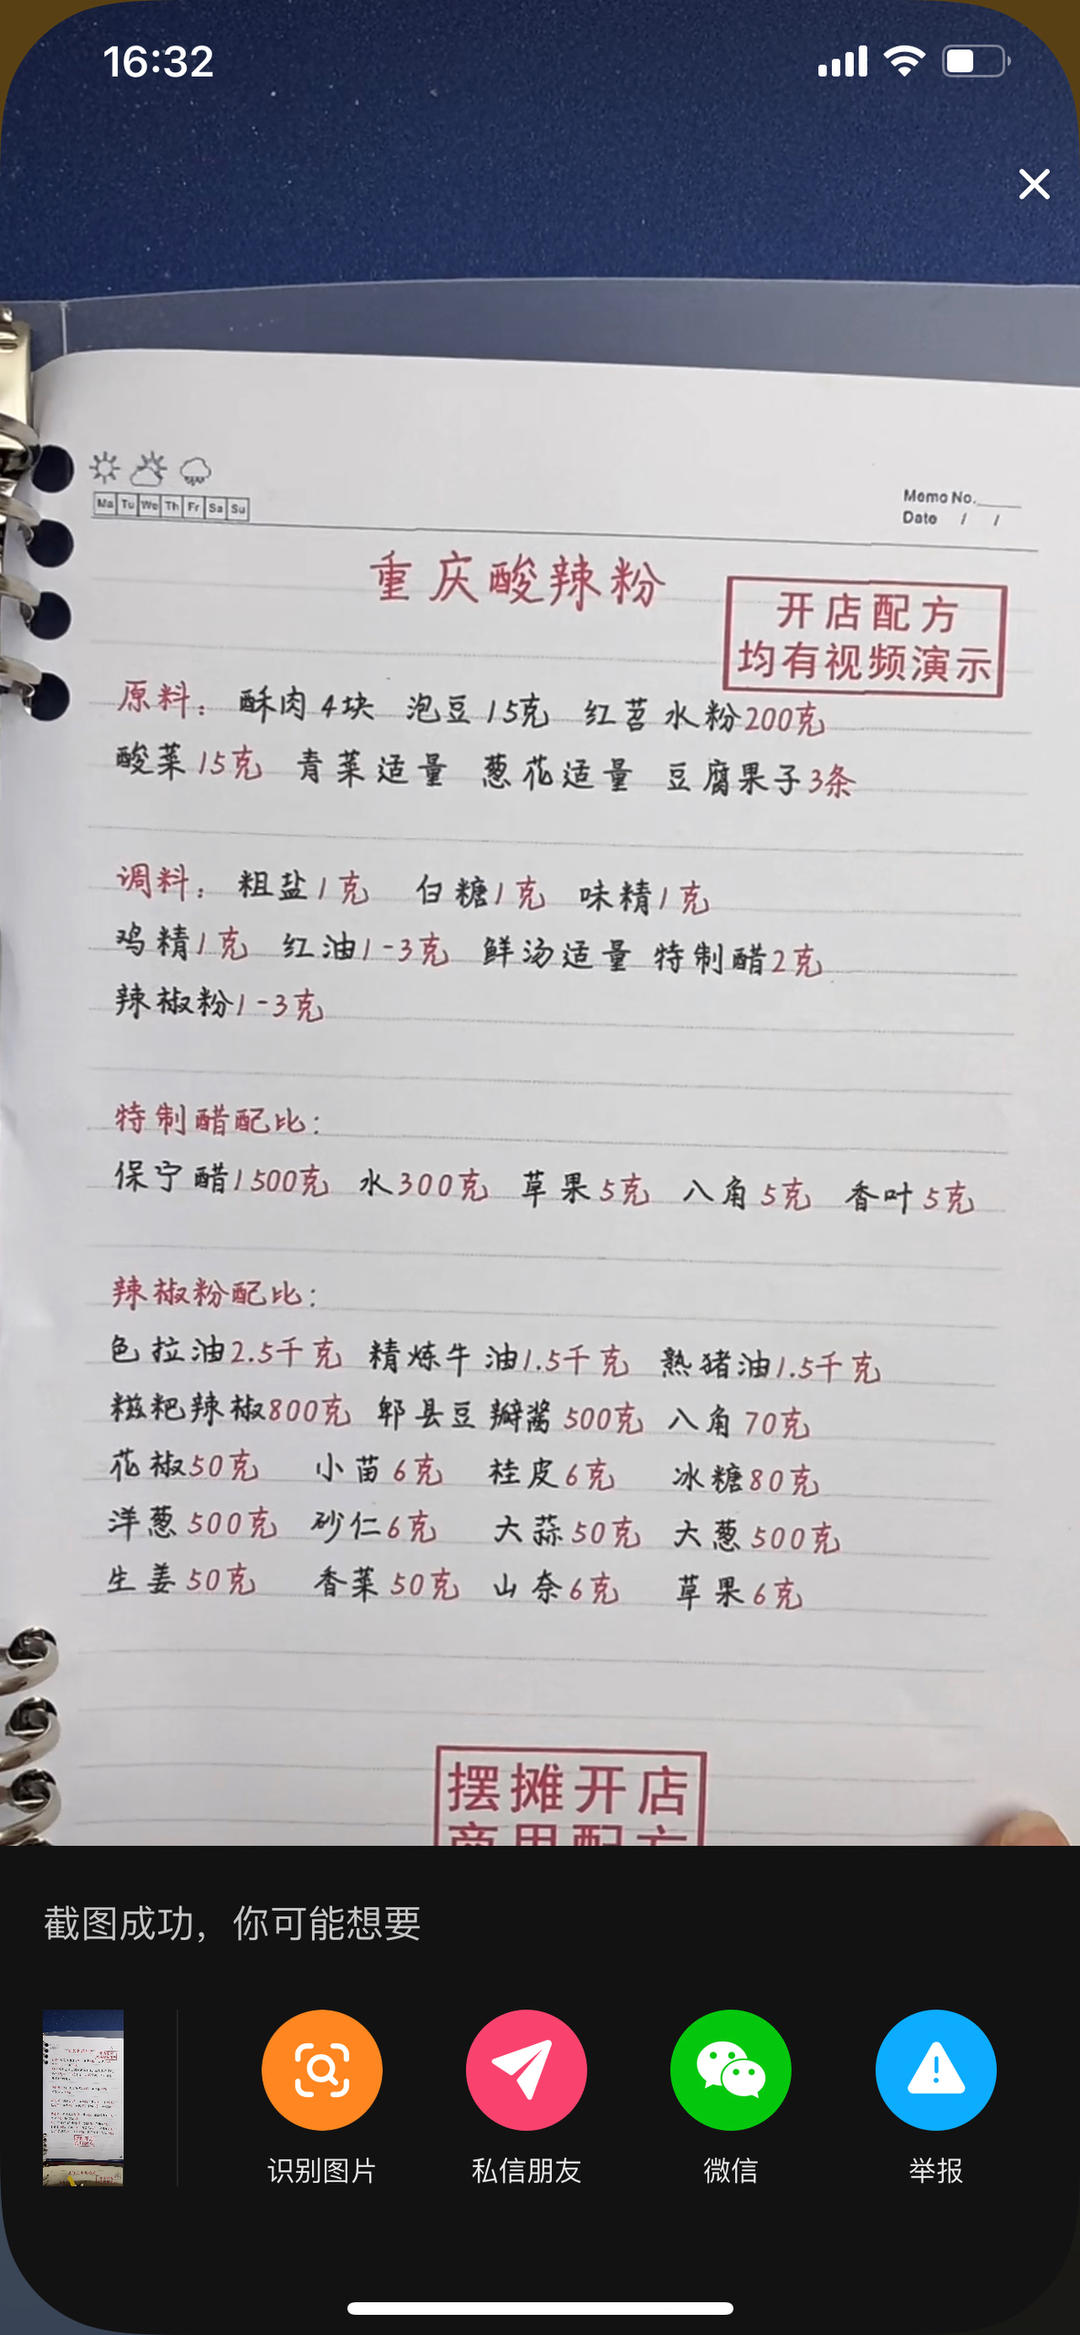 16:32
Mo Tu We Th Fr Sa Su
Memo No.
Date / /
重庆酸辣粉
开店配方
均有视频演示
原料：酥肉4块 泡豆15克 红苕水粉200克
酸菜15克 青菜适量 葱花适量 豆腐果子3条
调料：粗盐1克 白糖1克 味精1克
鸡精1克 红油1-3克 鲜汤适量 特制醋2克
辣椒粉1-3克
特制醋配比：
保宁醋1500克 水300克 草果5克 八角5克 香叶5克
辣椒粉配比：
色拉油2.5千克 精炼牛油1.5千克 熟猪油1.5千克
糍粑辣椒800克 郫县豆瓣酱500克 八角70克
花椒50克 小苗6克 桂皮6克 冰糖80克
洋葱500克 砂仁6克 大蒜50克 大葱500克
生姜50克 香菜50克 山奈6克 草果6克
摆摊开店
商用配方
截图成功，你可能想要
识别图片 私信朋友 微信 举报